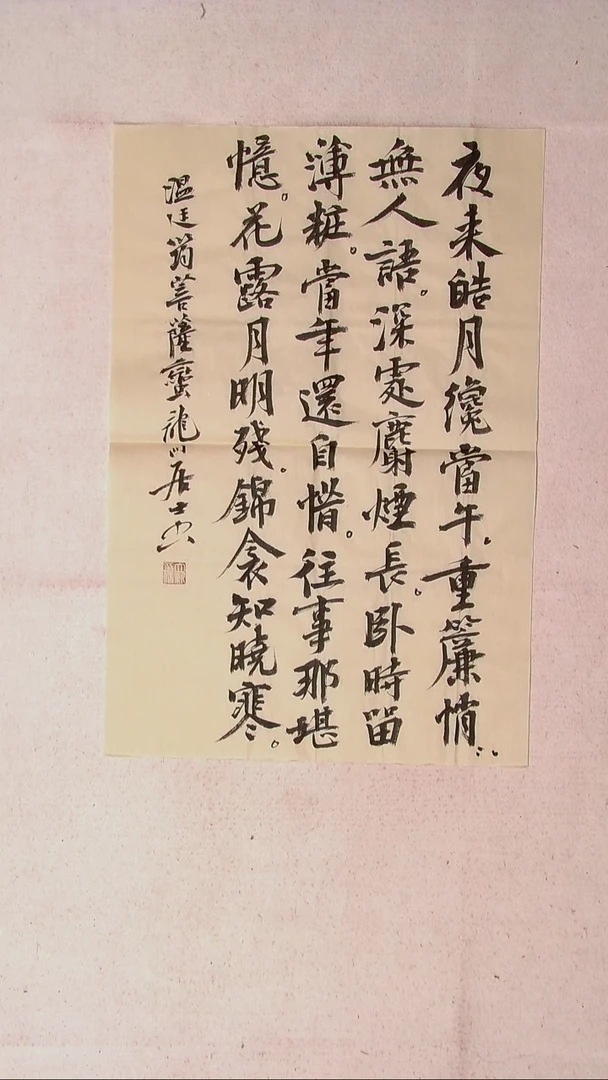 夜来皓月纔當午。重簾悄:
無人語。深處麝煙長。卧時留
薄粧。當年還自惜。往事那堪
憶。花露月明殘。錦衾知曉寒。
温廷筠菩薩蠻龍川居士书